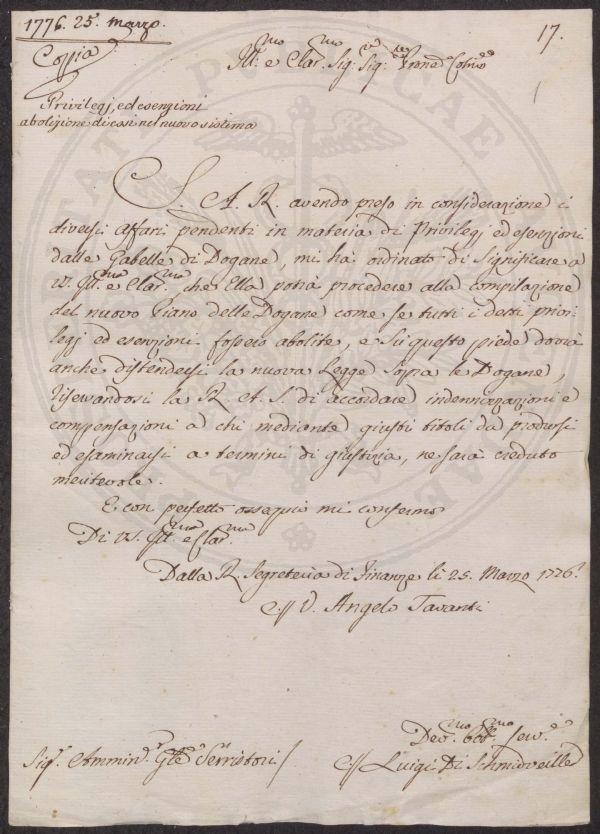 1776. 25. marzo.
17.
Coppia
Ill:mo e Clar:mo Sig: Sig: Prone Colmo
Privilegj, ed esenzioni
abolizione di essi nel nuovo sistema
S. A. R. avendo preso in considerazione i
diversi affari pendenti in materia di Privilegj ed esenzioni
dalle Gabelle di Dogane, mi hà ordinato di significare a
VS. Ill:ma e Clar:ma che Ella potrà procedere alla compilazione
del nuovo Piano delle Dogane come se tutti i detti privi-
legj ed esenzioni fossero abolite, e sù questo piede dovrà
anche distendersi la nuova Legge sopra le Dogane,
riservandosi la R. A. S. di accordare indennizazioni e
compensazioni a chi mediante giusti titoli da prodursi
ed esaminarsi a termini di giustizia, ne sarà creduto
meritevole.
E con perfetto ossequio mi confermo
Di VS. Ill:ma e Clar:ma
Dalla R. Segreteria di Finanze li 25. Marzo 1776.
V. Angelo Tavanti
Dev:mo Obb:mo Serv:e
Sig.r Ammin.r Gle Serristori
Luigi Di Schmidveiller